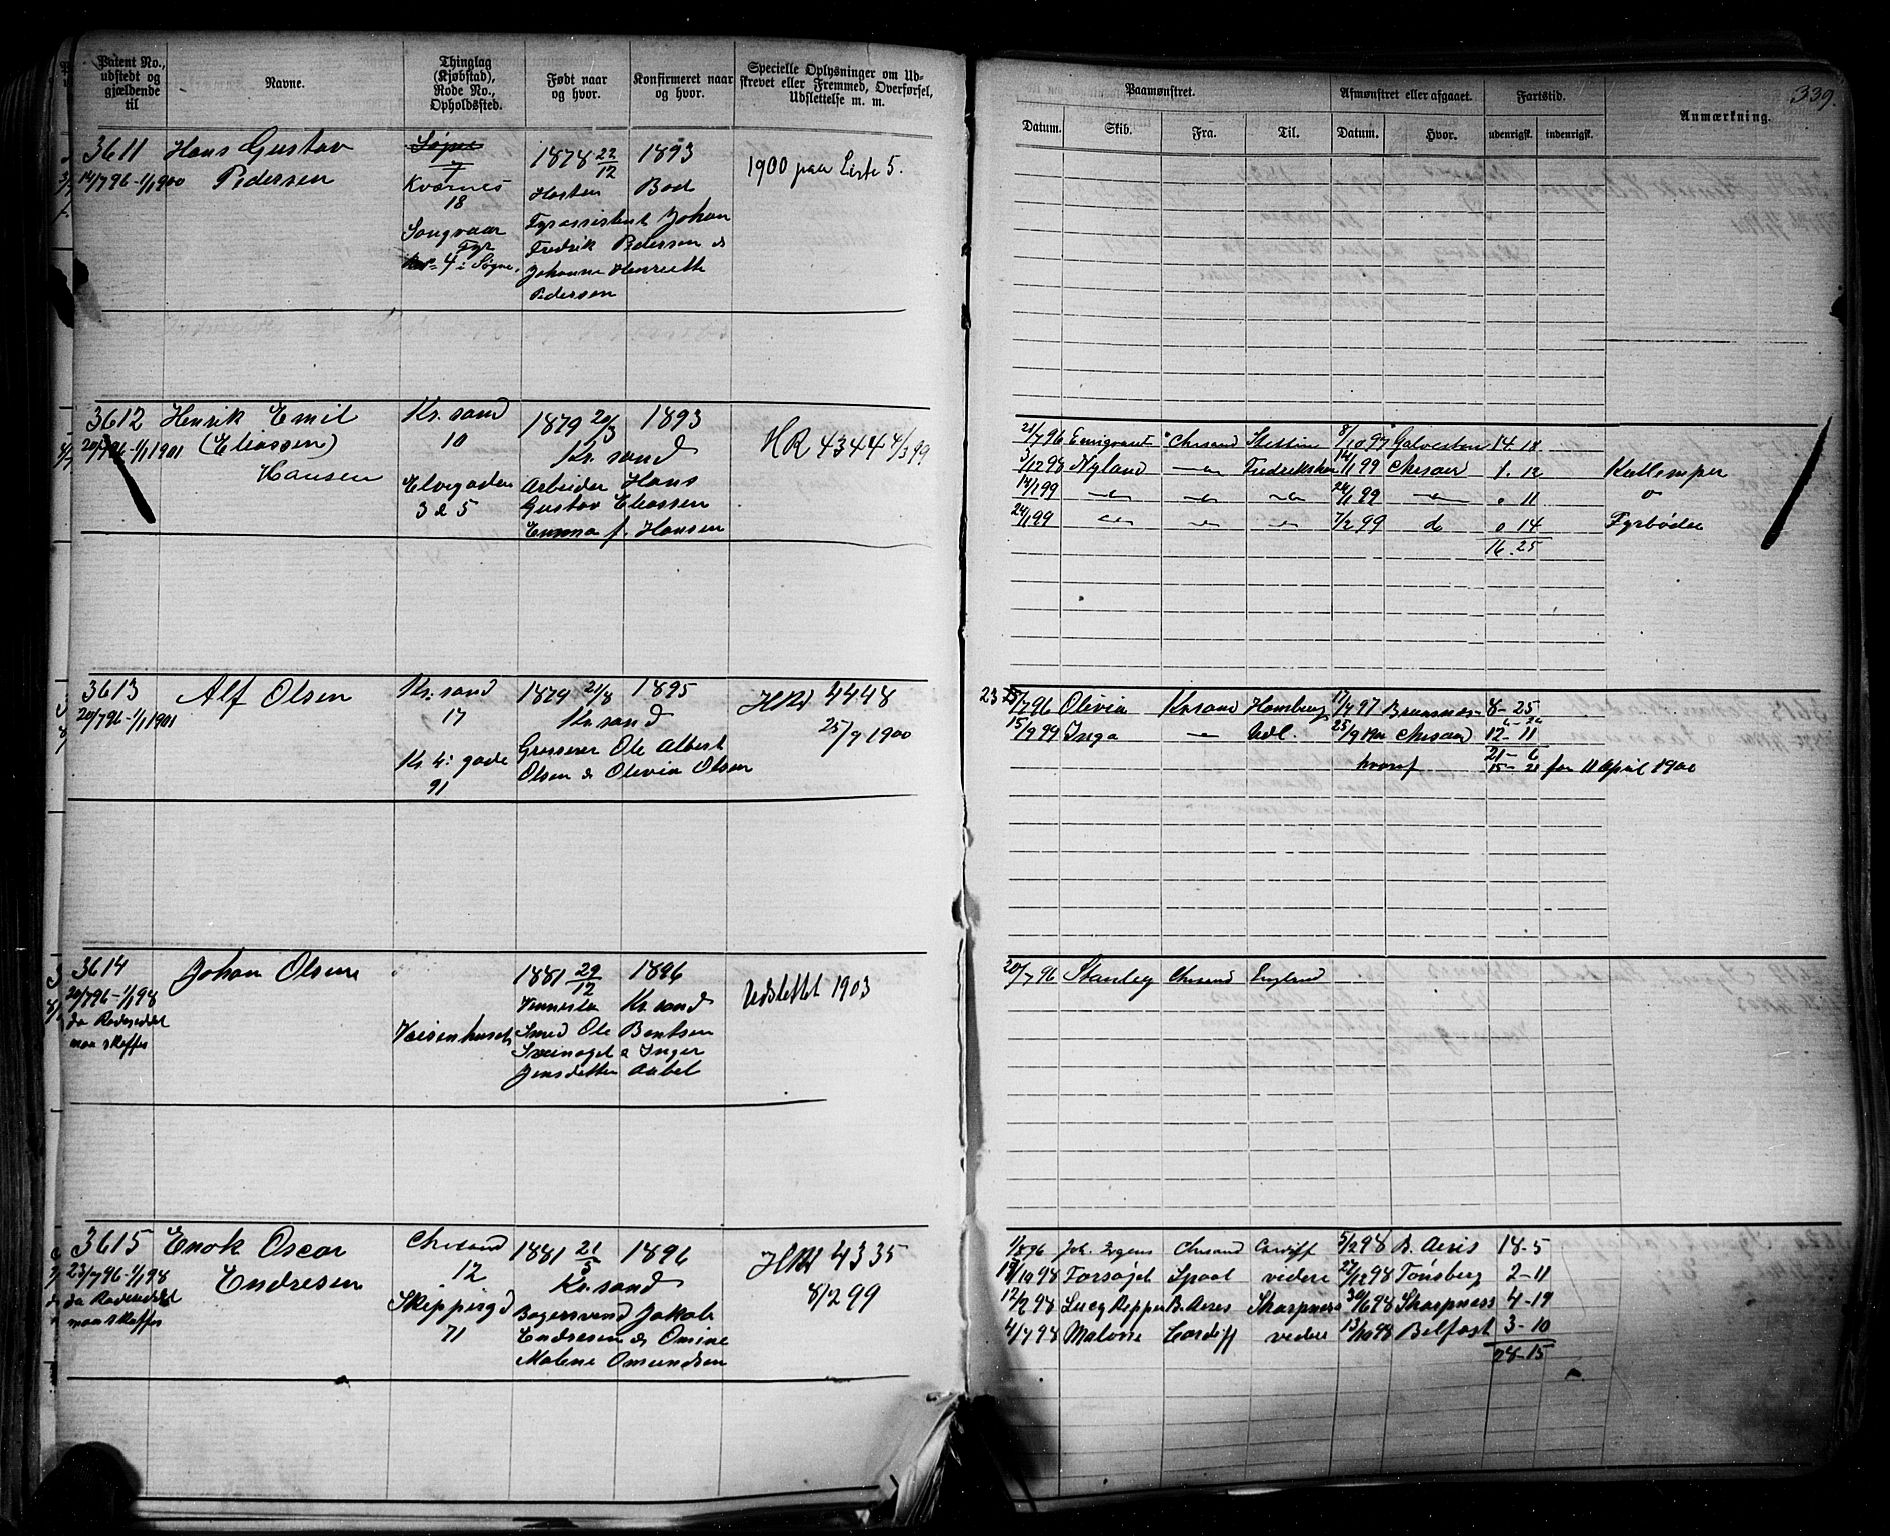 339.
Patent No., udstedt og gjældende til
Navne.
Thinglag (Kjøbstad), Rode No., Opholdssted.
Født naar og hvor.
Konfirmeret naar og hvor.
Specielle Oplysninger om Udstrevet eller Fremmed, Overførsel, Udslettelse m. m.
Paamønstret.
Afmønstret eller afgaaet.
Fartstid.
Anmærkning.
Datum. Skib. Fra. Til. Datum. Hvor. udenrigsk. indenrigsk.
3611 Hans Gustav Søgne 1878 22/12 1893
7
14/7 96-1/1 1900 Pedersen Kvarnes Hasten Bod 1900 paa Liste 5.
18
Songvaar Fyrassistent Johan
Fyr Fredrik Pedersen &
4 i Søgne. Johanne Henriette
Pedersen
3612 Henrik Emil Kr. sand 1879 20/3 1893
20/7 96-1/1 1901 (Eliassen) 10 Kr. sand HR 4344 4/3 99
Hansen Elvegaden Arbeider Hans
3 & 5 Gustav Eliassen
Emma f. Hansen
21/7 96 Chrsand Stettin 8/10 97 Galveston 14. 18
3/12 98 Nyland Fredriksha 14/1 99 Chrsand 1. 12 Kullemper
14/1 99 24/1 99 11
24/1 99 7/2 99 d 14 Fyrbøder
16. 25
3613 Alf Olsen Kr. sand 1879 21/8 1895 HRI 4448
20/7 96-1/1 1901 17 Kr. sand 25/9 1900
Kr 4: gade Grosserer Ole Albert
91 Olsen & Olivia Olsen
23/7 96 Olivia Krsand Hamburg 17/4 97 8-25
15/9 99 Inga Udl. 25/9 Chrsand 12-11
21- 6
hvoraf 15- 21 før 11 April 1900
3614 Johan Olsen 1881 29/12 1896 Udslettet 1903
20/7 96-1/1 98 Vennesla Kr. sand
da Rodeseddel Smed Ole Bentsen
maa skaffes Veisenhuset & Inger
Jensdatter Aabel
20/7 96 Stanley Chrsand England
3615 Enok Oscar Chrsand 1881 21/5 1896 HRI 4335
23/7 96-1/1 98 Endresen 12 Kr. sand 8/2 99
da Rodeseddel Skippergd Bagersvend Jakob
maa skaffes 71 Endresen & Omine
Malene Omundsen
1/8 96 Joh. Irgens Chrsand Cardiff 5/2 98 B. Aeris 18-5
Forsøget videre 27/12 98 Tønsberg 2-11
12/2 98 Lucy Pepper B. Aeres Sharpness 30/6 98 Sharpness 4-19
4/7 98 Cardiff videre 13/10 98 Belfast 3-10
28-15